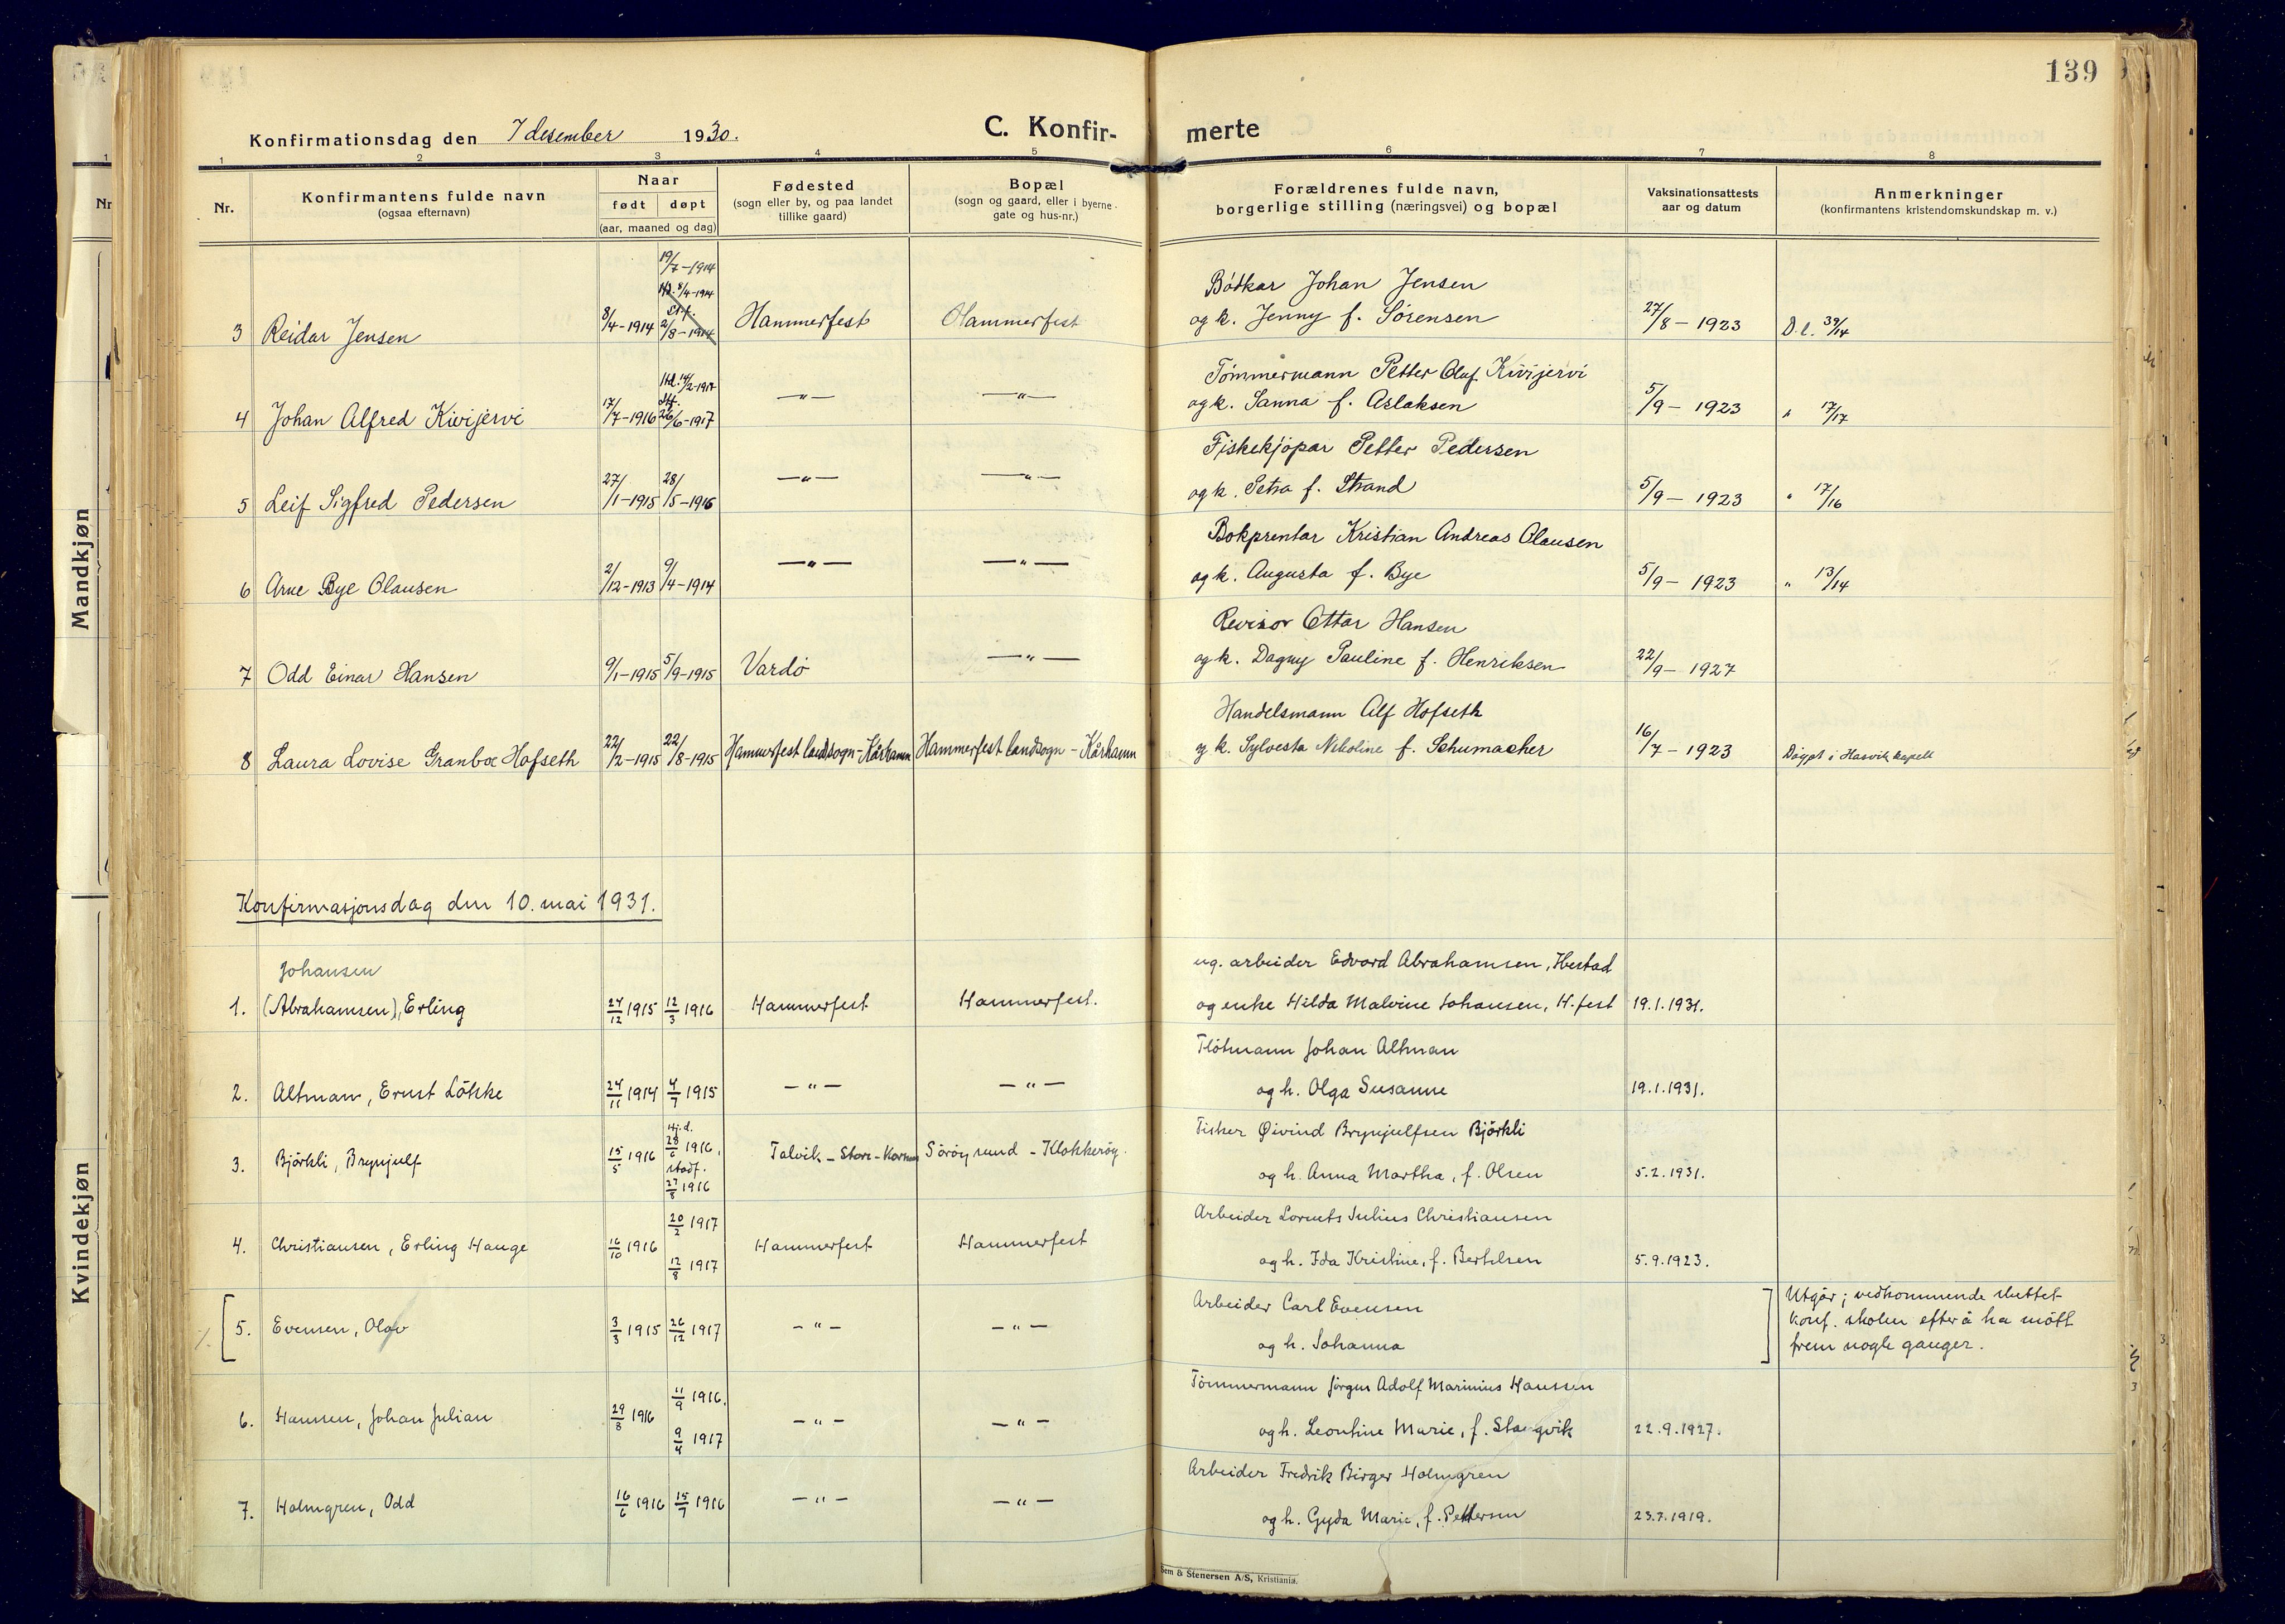 139
Konfirmationsdag den 7 desember 1930.
C. Konfir-
merte
1 2 3 4 5 6 7 8
Nr.
Konfirmantens fulde navn
(ogsaa efternavn)
Naar
født døpt
(aar, maaned og dag)
Fødested
(sogn eller by, og paa landet
tillike gaard)
Bopæl
(sogn og gaard, eller i byerne
gate og hus-nr.)
Forældrenes fulde navn,
borgerlige stilling (næringsvei) og bopæl
Vaksinationsattests
aar og datum
Anmerkninger
(konfirmantens kristendomskundskap m. v.)
Mandkjøn
Kvindekjøn
19/7-1914
Hd. 8/4-1914
Stf.
Bödkar Johan Jensen
3 Reidar Jensen 8/4-1914 2/8-1914 Hammerfest Hammerfest og k. Jenny f. Sörensen 27/8-1923 D.l. 39/14
Hd. 14/2-1917
Stf.
Tömmermann Petter Oluf Kivijervi
4 Johan Alfred Kivijervi 17/7-1916 26/6-1917 -"- -"- og k. Sanna f. Aslaksen 5/9-1923 " 17/17
Fiskekjöpar Petter Pedersen
5 Leif Sigfred Pedersen 27/1-1915 28/5-1916 -"- -"- og k. Petra f. Strand 5/9-1923 " 17/16
Bokprentar Kristian Andreas Olausen
6 Arne Bye Olausen 2/12-1913 9/4-1914 -"- -"- og k. Augusta f. Bye 5/9-1923 " 13/14
Revisor Ottar Hansen
7 Odd Einar Hansen 9/1-1915 5/9-1915 Vardö -"- og k. Dagny Pauline f. Henriksen 22/9-1927
Handelsmann Alf Hofseth
8 Laura Lovise Granboe Hofseth 22/2-1915 22/8-1915 Hammerfest landsogn-Kårhamn Hammerfest landsogn-Kårhamn og k. Sylvesta Nikoline f. Schumacher 16/7-1923 Döypt i Hasvik kapell
Konfirmasjonsdag den 10. mai 1931.
Johansen
ug. arbeider Edvard Abrahamsen, Ibestad
1. (Abrahamsen), Erling 24/12 1915 12/3 1916 Hammerfest Hammerfest. og enke Hilda Malvine Johansen, H.fest 19.1.1931.
Flötmann Johan Altman
2. Altman, Ernst Lökke 24/11 1914 4/7 1915 -"- -"- og h. Olga Susanne 19.1.1931.
Hj.d.
Fisker Øivind Brynjulfsen Björkli
3. Björkli, Brynjulf 15/5 1916 28/6 1916, stadf. 27/8 1916 Talvik - Store-Korsnes Söröysund - Klokkeröy. og h. Anna Martha, f. Olsen 5.2.1931.
Arbeider Lorents Julius Christiansen
4. Christiansen, Erling Hauge 16/10 1916 20/2 1917 12/8 1917 Hammerfest Hammerfest og h. Ida Kristine, f. Bertelsen 5.9.1923.
Arbeider Carl Evensen
5. Evensen, Olav 3/3 1915 26/12 1917 -"- -"- og h. Johanna
Utgår; vedkommende sluttet
konf. skolen efter å ha mött
frem nogle ganger.
Tömmermann Jörgen Adolf Marinius Hansen
6. Hansen, Johan Julian 29/8 1916 11/9 1916. 9/4 1917 -"- -"- og h. Leontine Marie, f. Stangvik 22.9.1927.
Arbeider Fredrik Birger Holmgren
7. Holmgren, Odd 16/6 1916 15/7 1916 -"- -"- og h. Gyda Marie, f. Pettersen 23.7.1919.
Sem & Stenersen A/S, Kristiania.